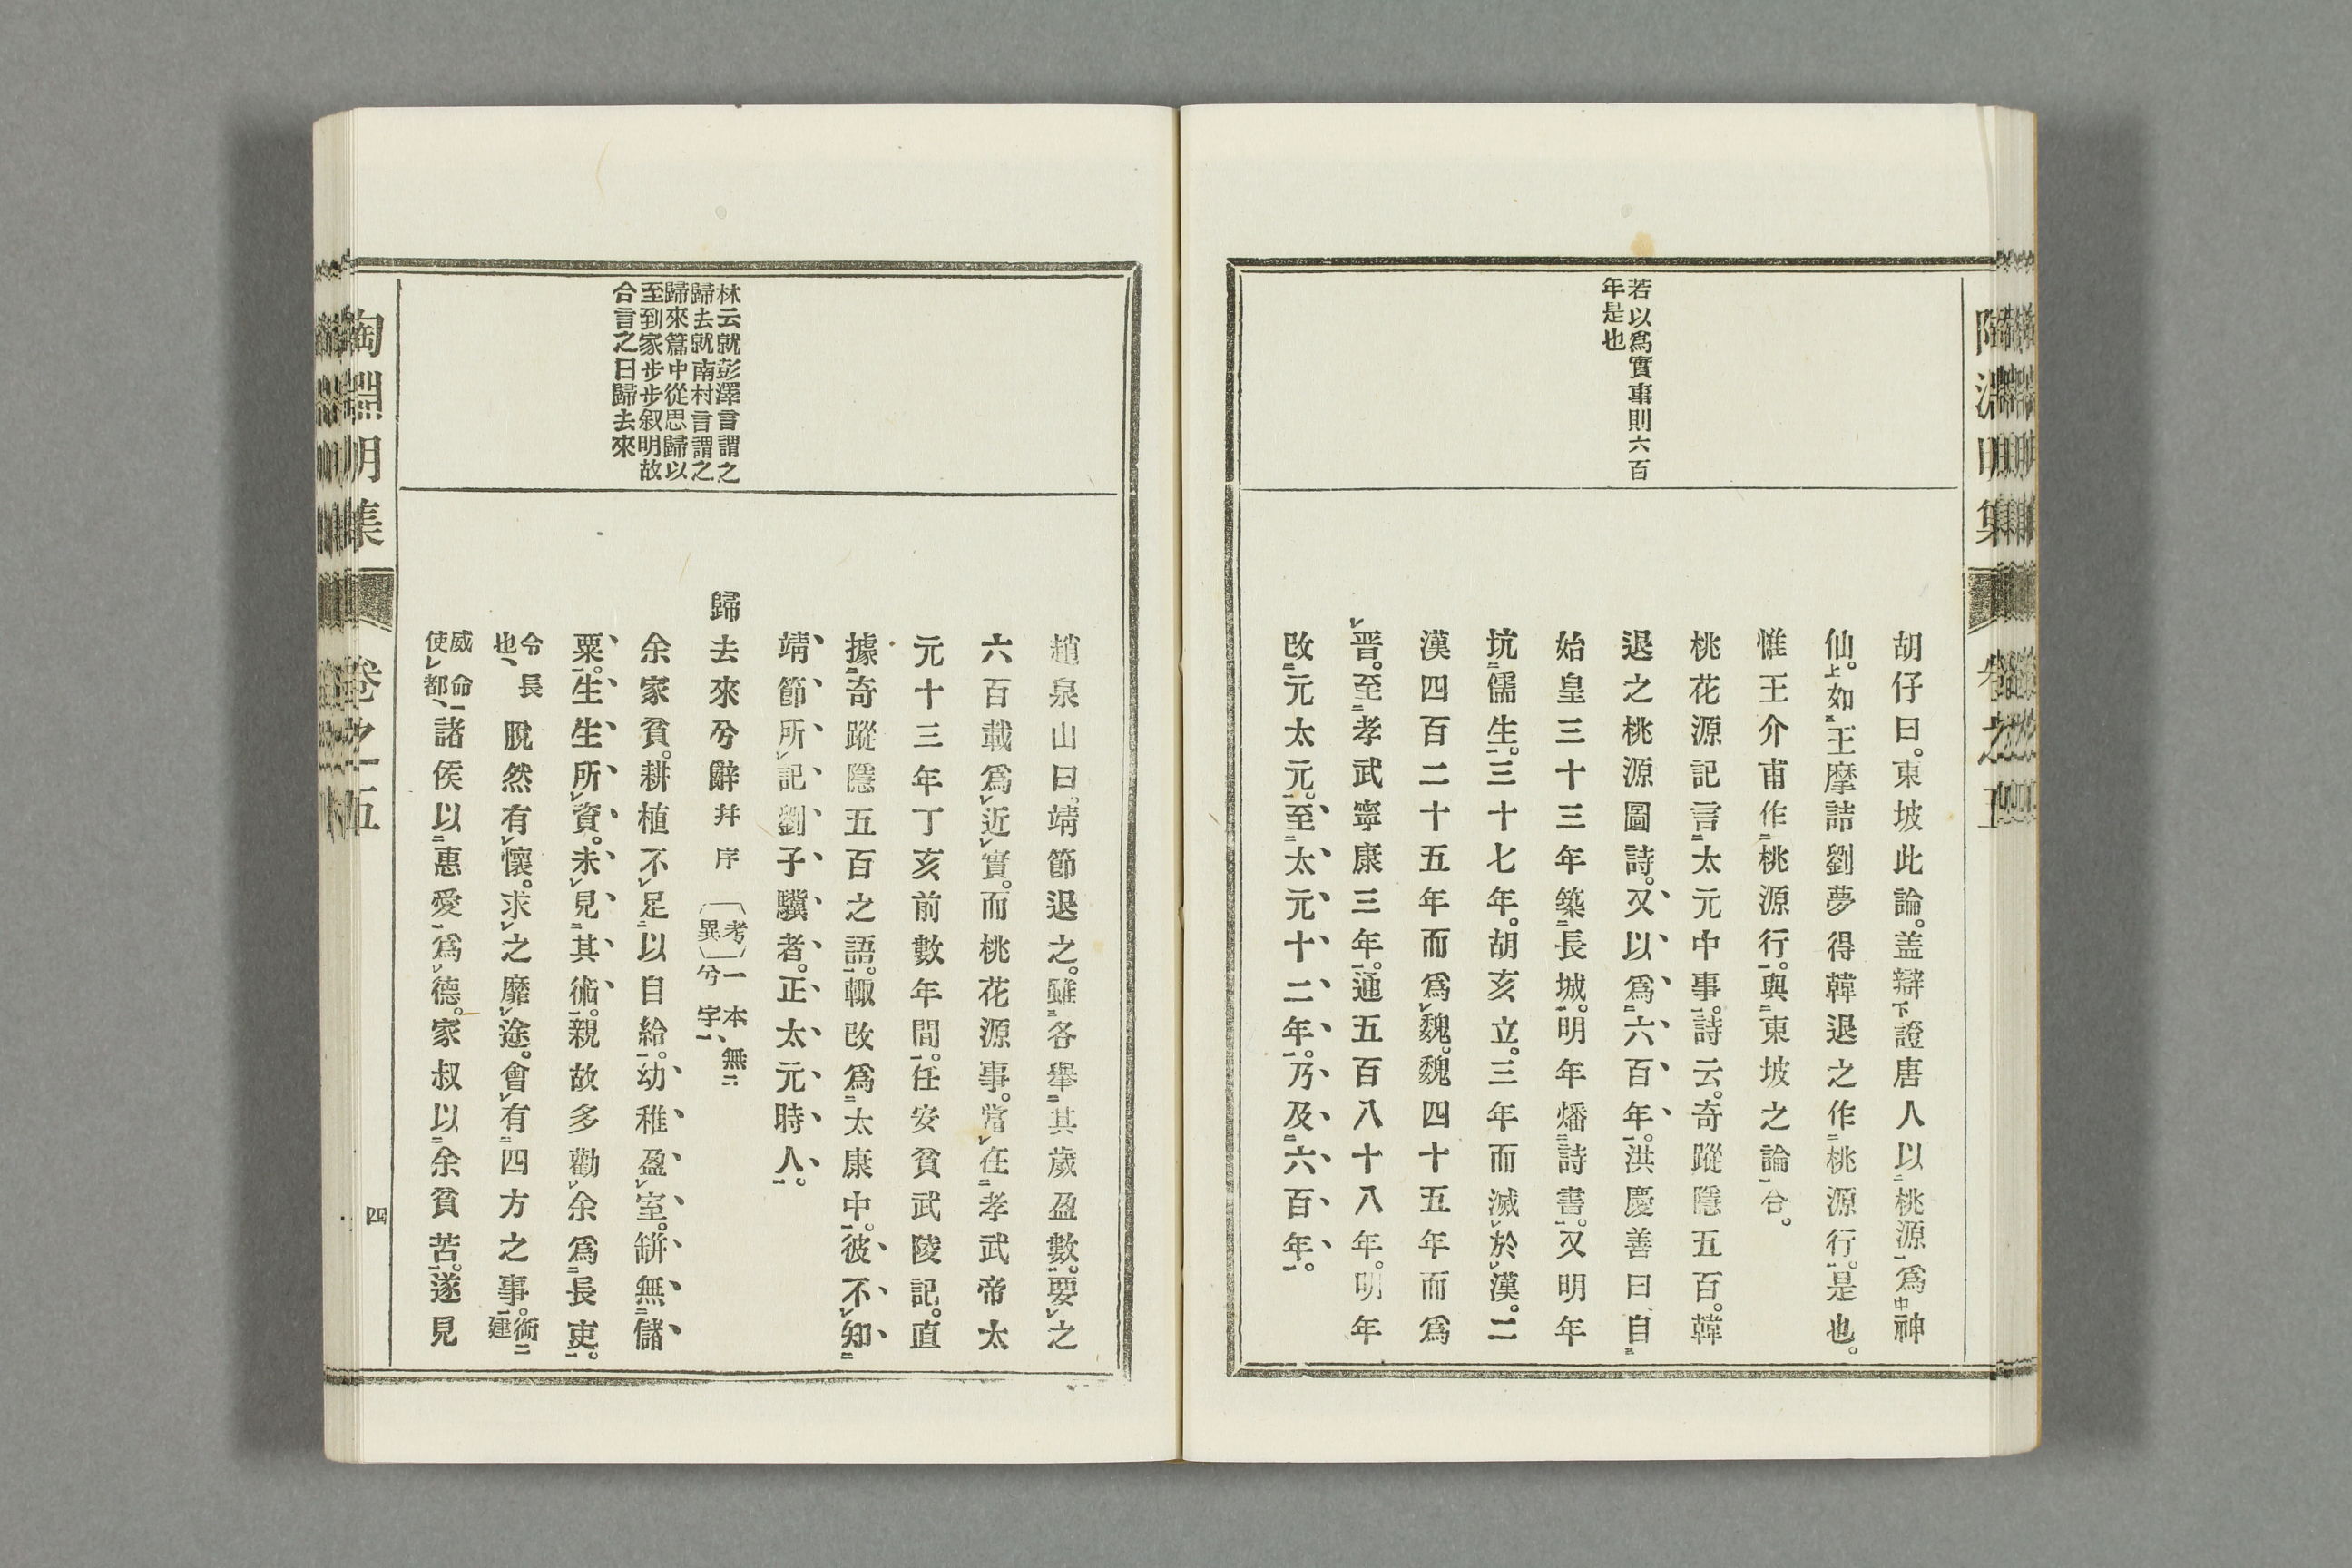 若以爲實事則六百
年是也
胡仔曰。東坡此論。蓋辯下證唐人以二桃源一爲中神
仙。上如王摩詰劉夢得韓退之作二桃源行一。是也。
惟王介甫作二桃源行一。與二東坡之論一合。
桃花源記言二太元中事一。詩云。奇蹤隱五百。韓
退之桃源圖詩。又以爲二六百年一。洪慶善曰自二
始皇三十三年築二長城一。明年燔二詩書一。又明年
坑二儒生一。三十七年。胡亥立。三年而滅レ於レ漢。二
漢四百二十五年而爲レ魏。魏四十五年而爲
レ晋。至二孝武寧康三年一。通五百八十八年。明年
改二元太元一。至二太元十二年一。乃及二六百年一。
趙泉山曰。靖節退之。雖三各舉二其歲盈數一。要レ之
六百載爲レ近レ實。而桃花源事。當レ在二孝武帝太
元十三年丁亥前數年間一。任安貧武陵記。直
據二奇蹤隱五百之語一。輙改爲二太康中一。彼不レ知二
靖節所レ記劉子驥者。正太元時人一。
歸去來兮辭 并序 〔考異〕一本無二兮字一、
余家貧。耕植不レ足二以自給一。幼稚盈レ室。缾無二儲
粟一。生生所レ資。未レ見二其術一。親故多勸レ余爲二長吏一。
脫然有レ懷。求レ之靡レ途。會レ有二四方之事一。衛二建
威命一使レ都、諸侯以二惠愛一爲レ德。家叔以二余貧苦一。遂見
林云就彭澤言謂之
歸去就南村言謂之
歸來篇中從思歸以
至到家步步叙明故
合言之曰歸去來
令長
也、
陶淵明集 卷之五
四